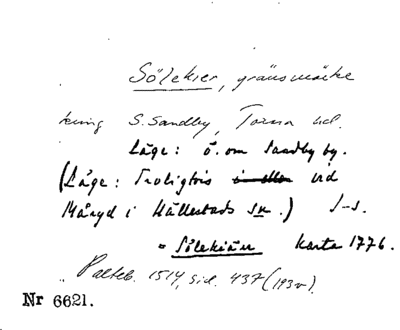 Sölekier, gränsmärke
kring S. Sandby, Torna hd.
Läge: ö. om Sandby by.
(Läge: Troligtvis i eller vid
Måryd i Hällestads sn.) S-s.
" Sölekiär karta 1776.
" Palteb. 1514, sid. 437 (193v).
Nr 6621.